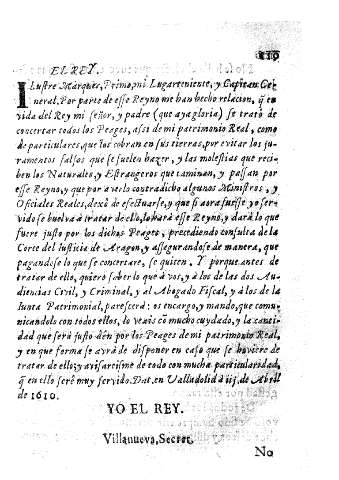 EL REY.
Ilustre Marques, Primo, mi Lugarteniente, y Capitan Ge
neral. Por parte de esse Reyno me han hecho relacion, q̃ en
vida del Rey mi señor, y padre (que aya gloria) se trató de
concertar todos los Peages, assi de mi patrimonio Real, como
de particulares, que los cobran en sus tierras, por euitar los ju-
ramentos falsos que se suelen hazer, y las molestias que reci-
ben los Naturales, y Estrangeros que caminan, y passan por
esse Reyno, y que por auerlo contradicho algunos Ministros, y
Oficiales Reales, dexó de efectuarse, y que si aora fuesse yo ser-
vido se buelua à tratar de ello, lo hará esse Reyno, y dará lo que
fuere justo por los dichos Peages, precediendo consulta de la
Corte del Iusticia de Aragon, y assegurandose de manera, que
pagandose lo que se concertare, se quiten. Y porque antes de
tratar de ello, quiero saber lo que à vos, y à los de las dos Au-
diencias Civil, y Criminal, y al Abogado Fiscal, y à los de la
Iunta Patrimonial, parescerá: os encargo, y mando, que comu-
nicandolo con todos ellos, lo veais cõ mucho cuydado, y la canti-
dad que será justo dèn por los Peages de mi patrimonio Real,
y en que forma se avrà de disponer en caso que se huviere de
tratar de ello; y avisareisme de todo con mucha particularidad,
q̃ en ello serè muy servido. Dat. en Valladolid à iij. de Abril
de 1610.
YO EL REY.
Villanueva, Secret.
No